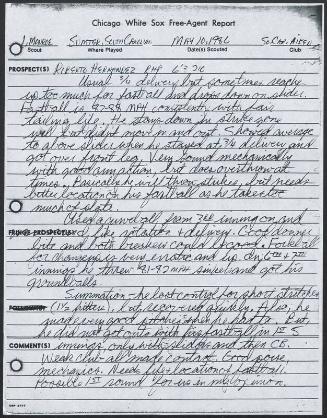 Chicago White Sox Free-Agent Report
L. Monroe Sumter, South Carolina MAY 10, 1986 So. Car. Aiken
Scout Where Played Date(s) Scouted Club
PROSPECT(S) ROBERTO HERNANDEZ RHP 6'3 210
Usual 3/4 delivery but sometimes reaches
up too much for fastball and drops down on slider.
Fastball is 87-88 MPH consistently with fair
tailing life. He stays down in strike zone
well but didn't move in and out. Showed average
to above slider when he stayed at 3/4 delivery and
got over front leg. Very sound mechanically
with good arm action, but does overthrow at
times. Basically he will throw strikes, but needs
better location on his fastball as he takes too
much of plate.
Used a curveball from 3rd inning on and
FRINGE PROSPECT(S) rotation & delivery. Good downer
bite and both breakers could be
for change up is very erratic and up. In 6th & 7th
innings he threw 91-92 MPH and got his
groundballs.
Summation - he lost control for short stretches
FOLLOW(S) (1 1/2 innings), but recovered quickly. Also, he
made very good pitches when he had to. But,
he did not get outs with his fastball in 1st 5
COMMENT(S) innings, only with slider and then CB.
Weak club - all made contact. Good poise,
mechanics. Needs life & location of fastball.
Possible 1st round for us in my opinion.